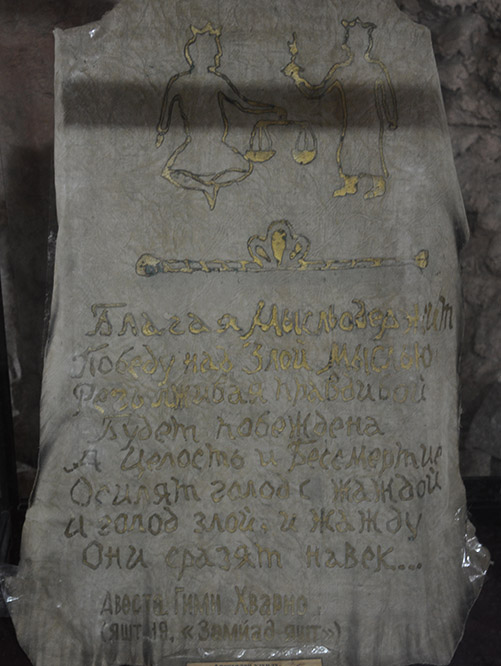 Благая Мысль одержит
Победу над Злой Мыслью
Речь лживая правдивой
Будет побеждена
А Целость и Бессмертие
Осилят голод с жаждой
и голод злой и жажду
Они сразят навек....
Авеста. Гимн Хварно.
(яшт-19, «Замйад-яшт»)